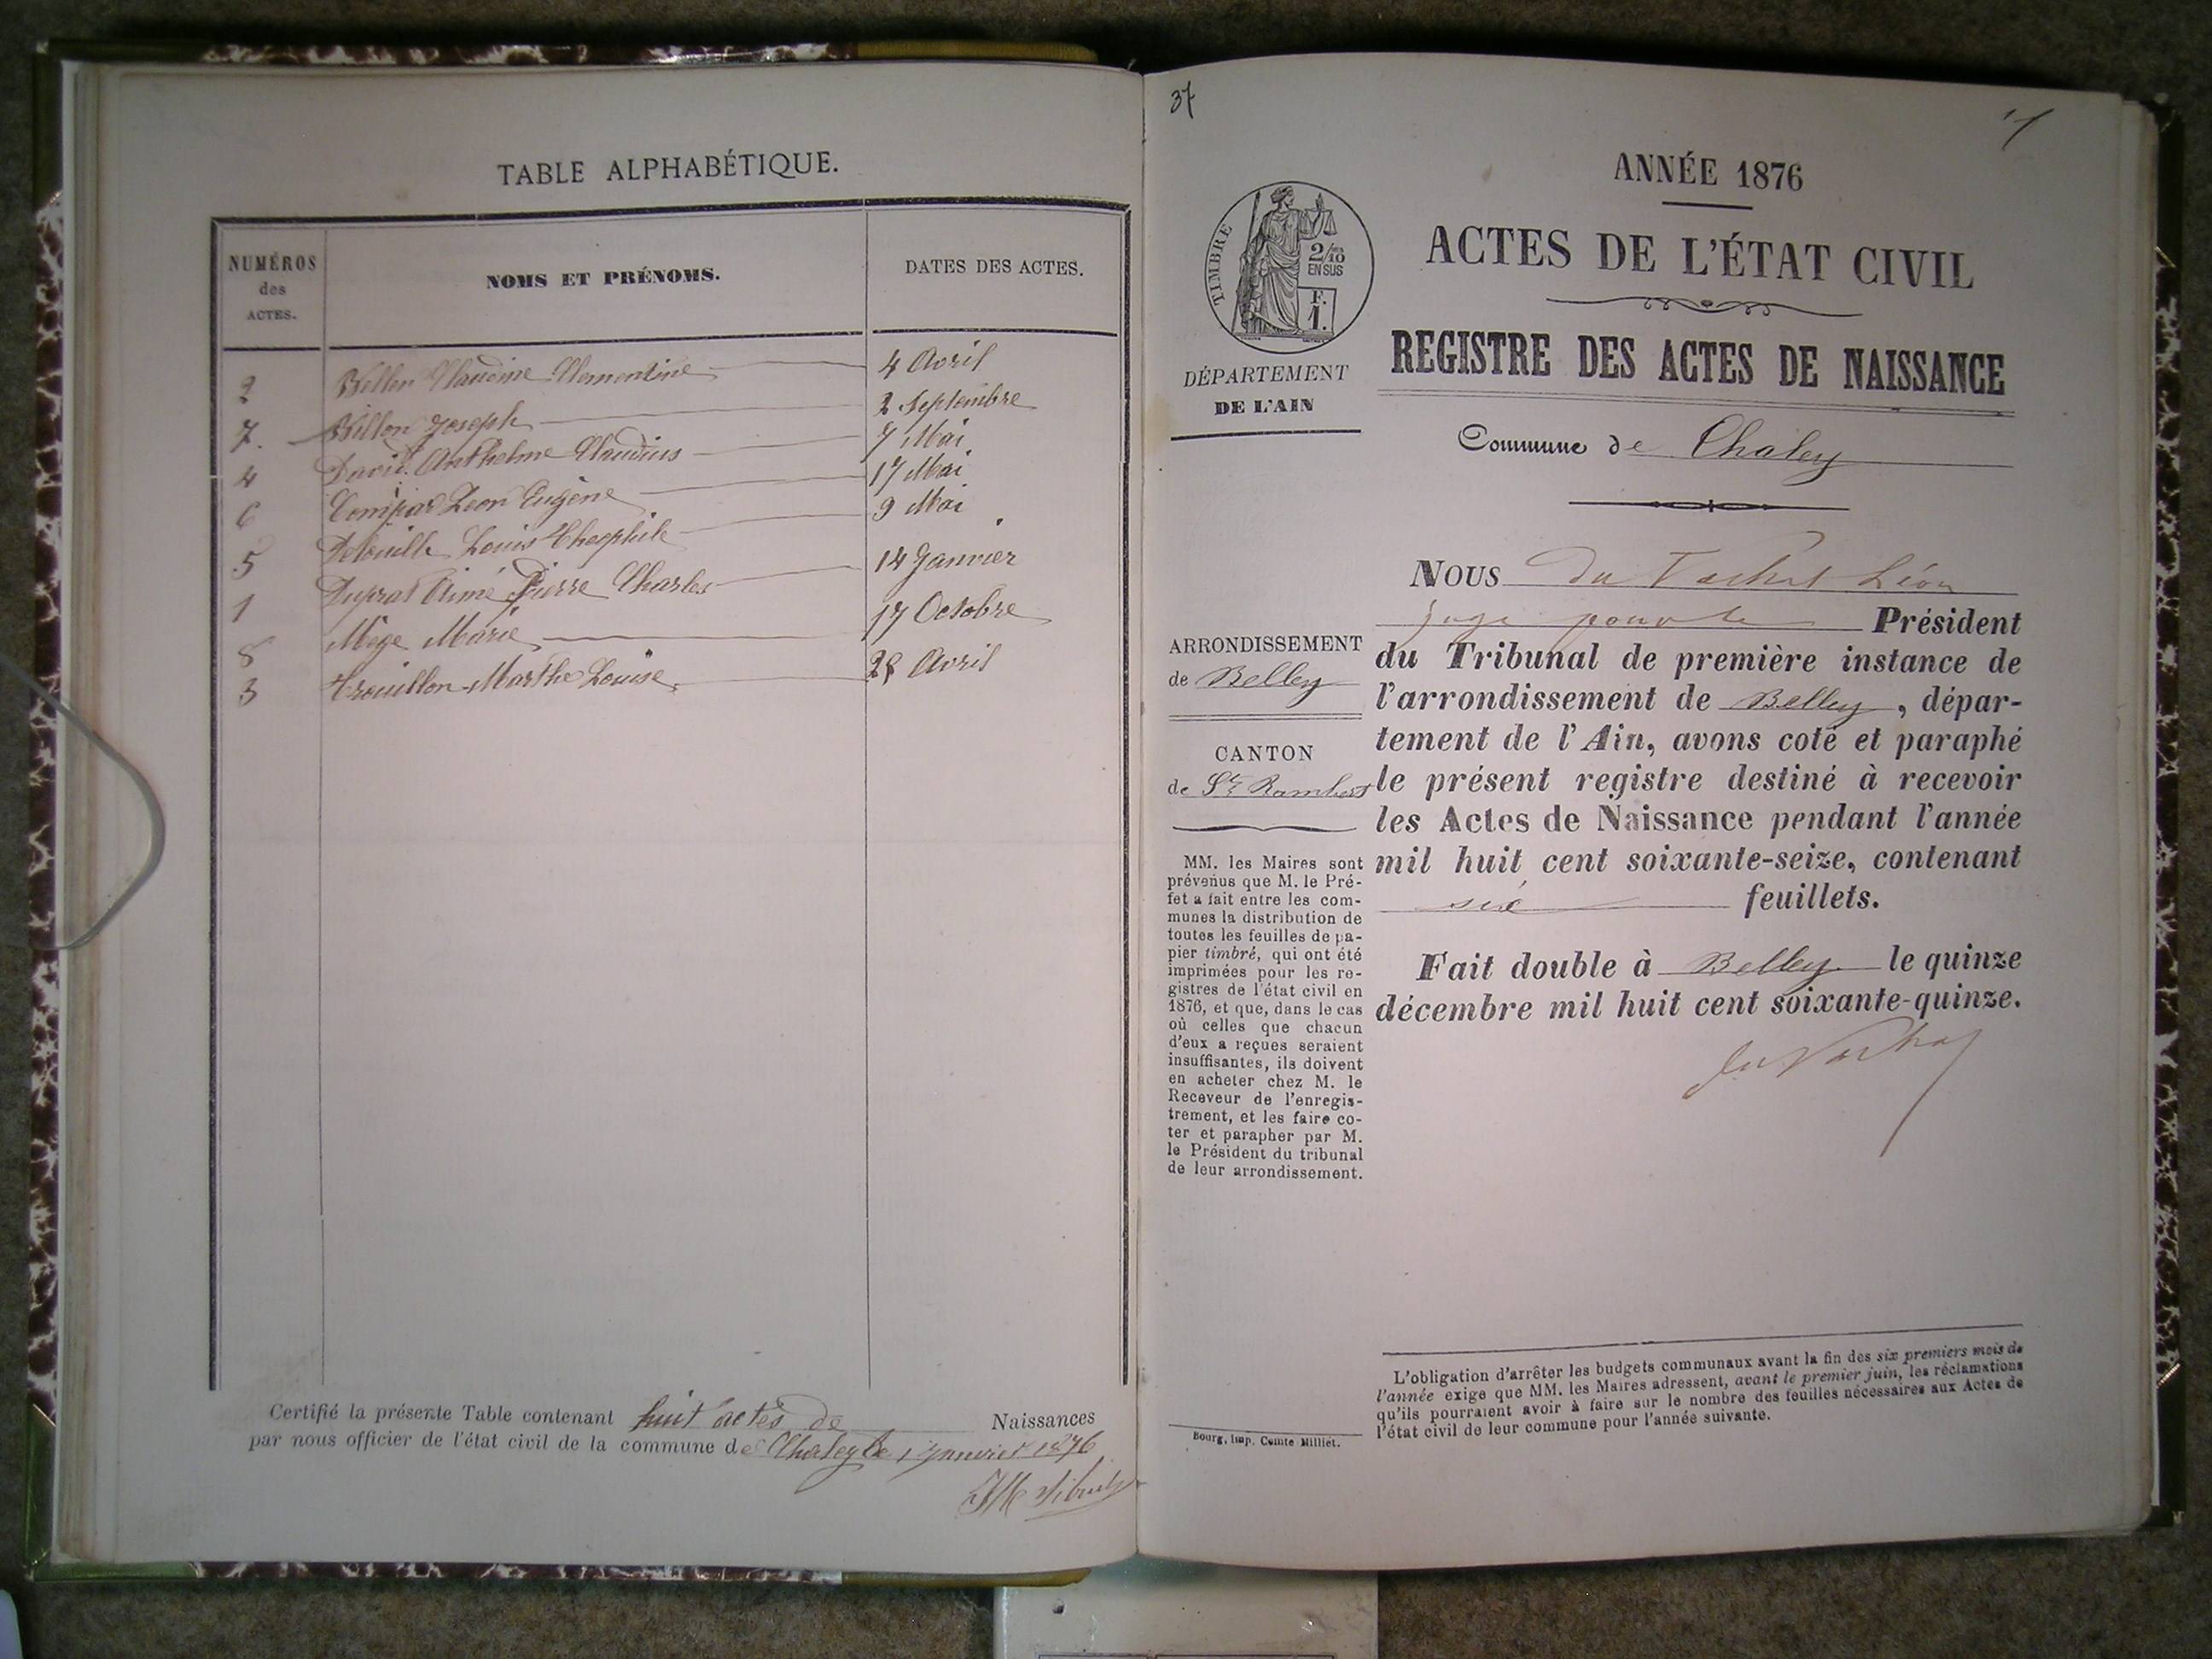 TABLE ALPHABÉTIQUE.
NUMÉROS
des
ACTES.
NOMS ET PRÉNOMS.
DATES DES ACTES.
2 Claudine Clementine 4 Avril
7. Joseph 2 Septembre
4 David Anthelme Claudius 7 Mai
6 Leon Eugène 17 Mai
5 Louis Theophile 9 Mai
1 Duprat Aimé Pierre Charles 14 Janvier
8 Mège Marie 17 Octobre
3 Trouillon Marthe Louise 28 Avril
Certifié la présente Table contenant huit actes de Naissances
par nous officier de l'état civil de la commune de Chaley le 1 Janvier 1876
37
1
ANNÉE 1876
ACTES DE L'ÉTAT CIVIL
REGISTRE DES ACTES DE NAISSANCE
Commune de Chaley
TIMBRE
2/10
EN SUS
F.
1.
DÉPARTEMENT
DE L'AIN
ARRONDISSEMENT
de Belley
CANTON
de St Rambert
MM. les Maires sont
prévenus que M. le Pré-
fet a fait entre les com-
munes la distribution de
toutes les feuilles de pa-
pier timbré, qui ont été
imprimées pour les re-
gistres de l'état civil en
1876, et que, dans le cas
où celles que chacun
d'eux a reçues seraient
insuffisantes, ils doivent
en acheter chez M. le
Receveur de l'enregis-
trement, et les faire co-
ter et parapher par M.
le Président du tribunal
de leur arrondissement.
Bourg, imp. Comte Milliet.
NOUS du Léon
juge pour le Président
du Tribunal de première instance de
l'arrondissement de Belley, dépar-
tement de l'Ain, avons coté et paraphé
le présent registre destiné à recevoir
les Actes de Naissance pendant l'année
mil huit cent soixante-seize, contenant
six feuillets.
Fait double à Belley le quinze
décembre mil huit cent soixante-quinze.
L'obligation d'arrêter les budgets communaux avant la fin des six premiers mois de
l'année exige que MM. les Maires adressent, avant le premier juin, les réclamations
qu'ils pourraient avoir à faire sur le nombre des feuilles nécessaires aux Actes de
l'état civil de leur commune pour l'année suivante.